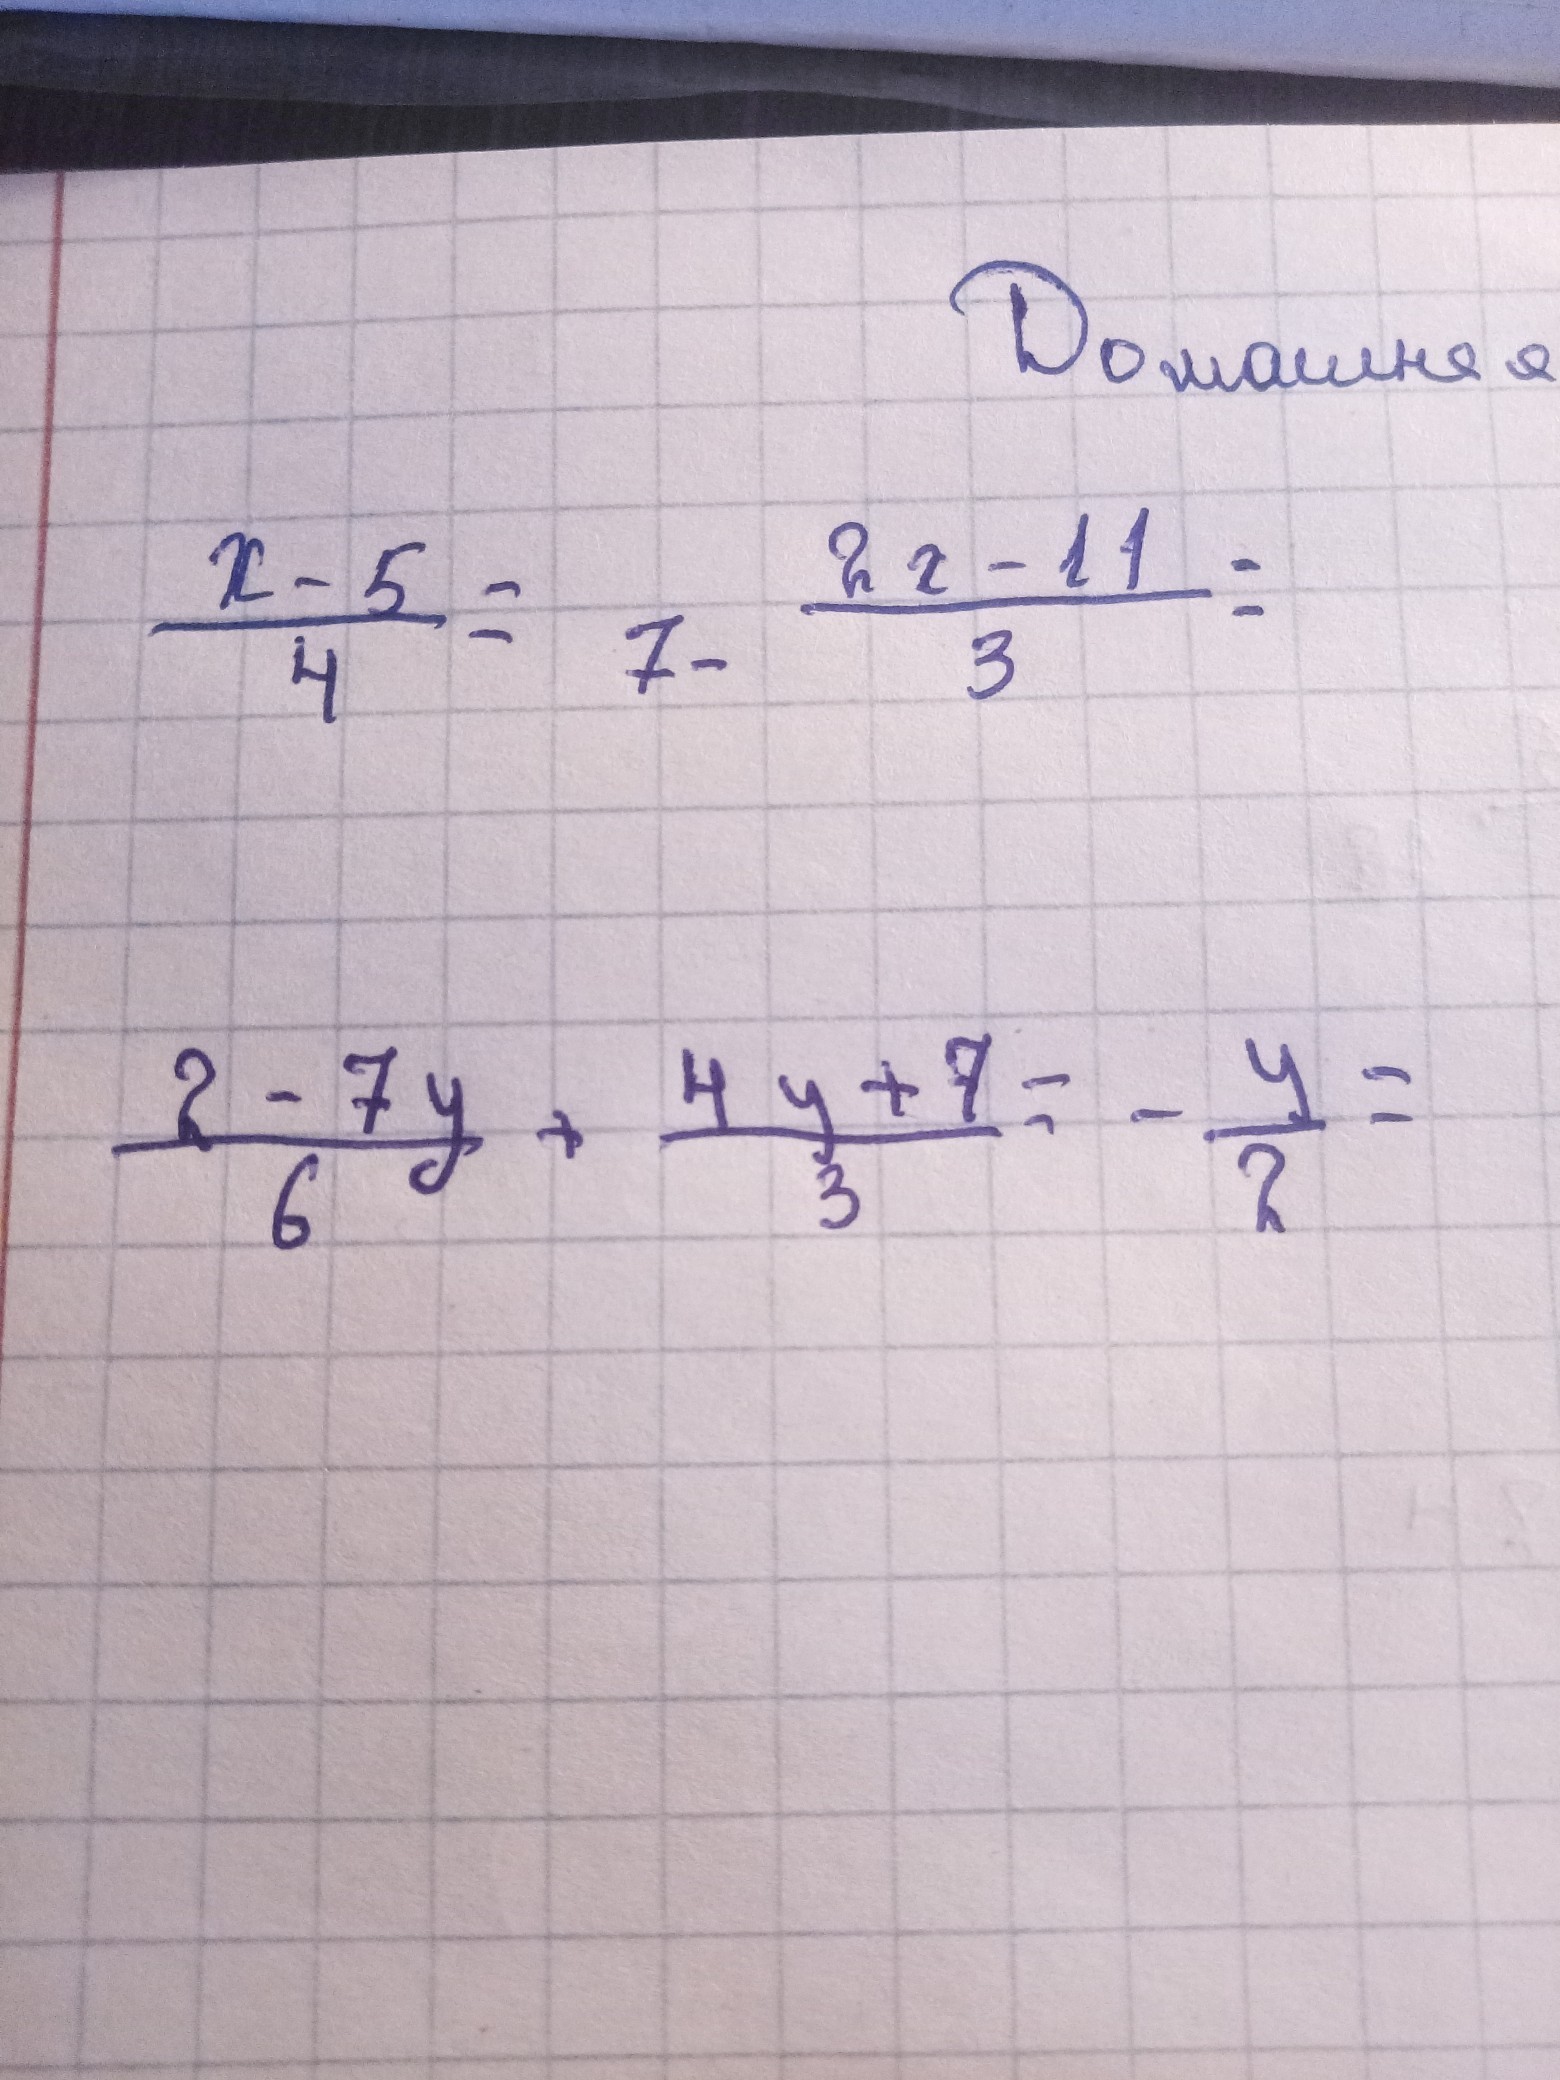 Домашняя
x - 5 / 4 = 7 - 2x - 11 / 3 =
2 - 7y / 6 + 4y + 7 / 3 = - y / 2 =